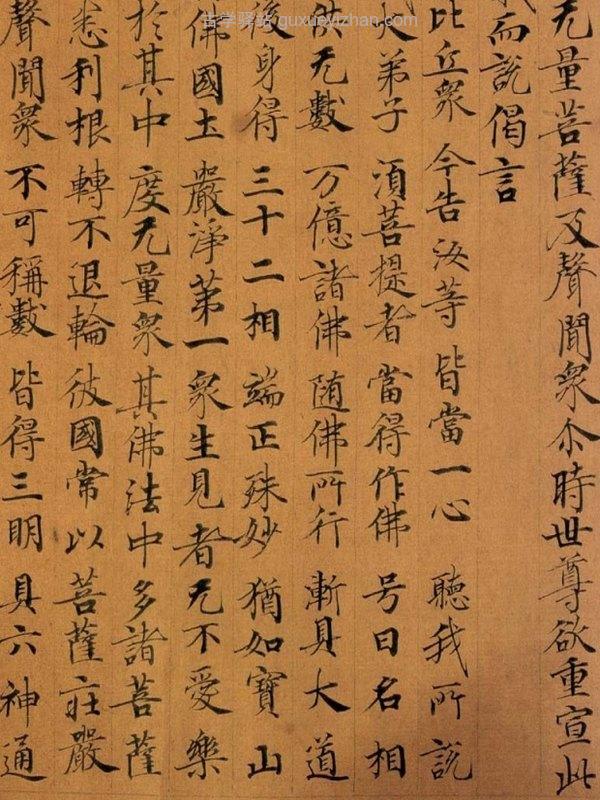 古学驿站 guxueyizhan.com
无量菩薩及聲聞衆尒時世尊欲重宣此
而說偈言
比丘衆 今告汝等 皆當一心 聽我所說
大弟子 湏菩提者 當得作佛 号曰名相
供无數 万億諸佛 随佛所行 漸具大道
後身得 三十二相 端正殊妙 猶如寶山
佛國土 嚴淨第一 衆生見者 无不愛樂
於其中 度无量衆 其佛法中 多諸菩薩
悉利根 轉不退輪 彼國常以 菩薩莊嚴
聲聞衆 不可稱數 皆得三明 具六神通